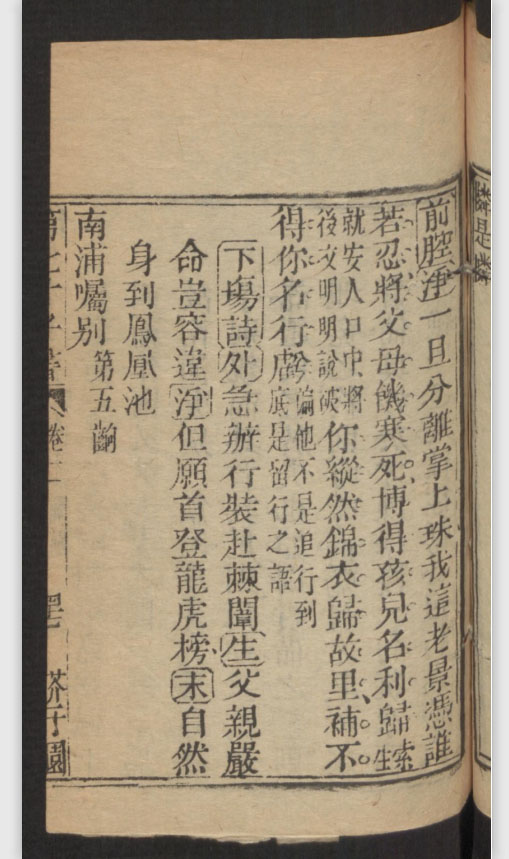 前腔淨一旦分離掌上珠我這老景憑誰
若忍將父母饑寒死博得孩兒名利歸索性
就安人口中將
後文明明說破
你縱然錦衣歸故里補不
得你名行虧
偏他不是追行到
底是留行之語
下塲詩外急辦行裝赴棘闈生父親嚴
命豈容違淨但願首登龍虎榜末自然
身到鳳凰池
南浦囑別 第五齣
第七才子書 卷二 芥子園